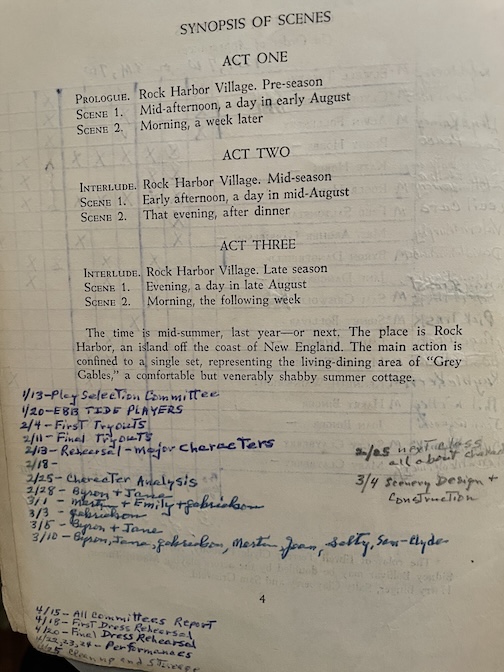 SYNOPSIS OF SCENES
ACT ONE
PROLOGUE. Rock Harbor Village. Pre-season
SCENE 1. Mid-afternoon, a day in early August
SCENE 2. Morning, a week later
ACT TWO
INTERLUDE. Rock Harbor Village. Mid-season
SCENE 1. Early afternoon, a day in mid-August
SCENE 2. That evening, after dinner
ACT THREE
INTERLUDE. Rock Harbor Village. Late season
SCENE 1. Evening, a day in late August
SCENE 2. Morning, the following week
The time is mid-summer, last year—or next. The place is Rock
Harbor, an island off the coast of New England. The main action is
confined to a single set, representing the living-dining area of “Grey
Gables,” a comfortable but venerably shabby summer cottage.
1/13-Play Selection Committee
1/20-EBB TIDE PLAYERS
2/4-First Tryouts
2/11-Final Tryouts
2/13-Rehearsal-Major Characters
2/18-
2/25-Character Analysis
2/28-Byron + Jane
3/1-Martin + Emily + gabrielson
3/3-gabrielson
3/5-Byron + Jane
3/10-Byron, Jane, gabrielson, Martin, Jean, Salty, Sen-Clyde
2/25 next class
all about
3/4 Scenery Design +
Construction
4
4/15-All Committees Report
4/18-First Dress Rehearsal
4/20-Final Dress Rehearsal
4/22,23,24-Performances
4/25 Clean up and Storage